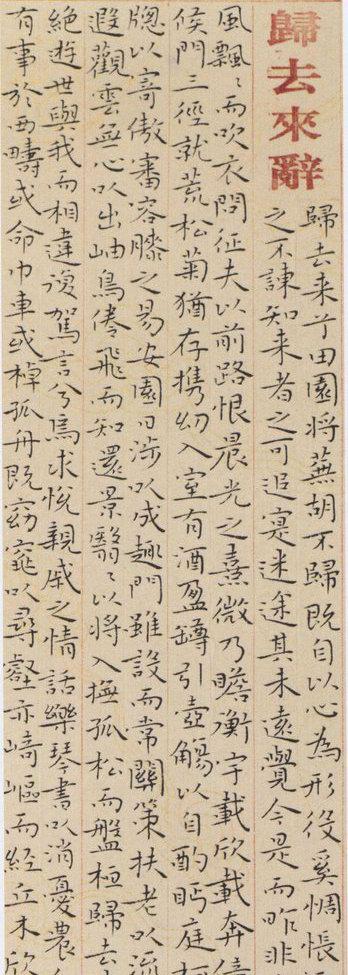 歸去來辭
歸去来兮田園將蕪胡不歸既自以心為形役奚惆悵
之不諫知来者之可追寔迷途其未遠覺今是而昨非
風飄〻而吹衣問征夫以前路恨晨光之熹微乃瞻衡宇載欣載奔僮
侯門三徑就荒松菊猶存携幼入室有酒盈罇引壺觴以自酌眄庭柯
牎以寄傲審容膝之易安園日涉以成趣門雖設而常關策扶老以流
遐觀雲無心以出岫鳥倦飛而知還景翳〻以將入撫孤松而盤桓歸去
絕遊世與我而相違復駕言兮焉求悅親戚之情話樂琴書以消憂農人
有事於西疇或命巾車或棹孤舟既窈窕以尋壑亦崎嶇而經丘木欣